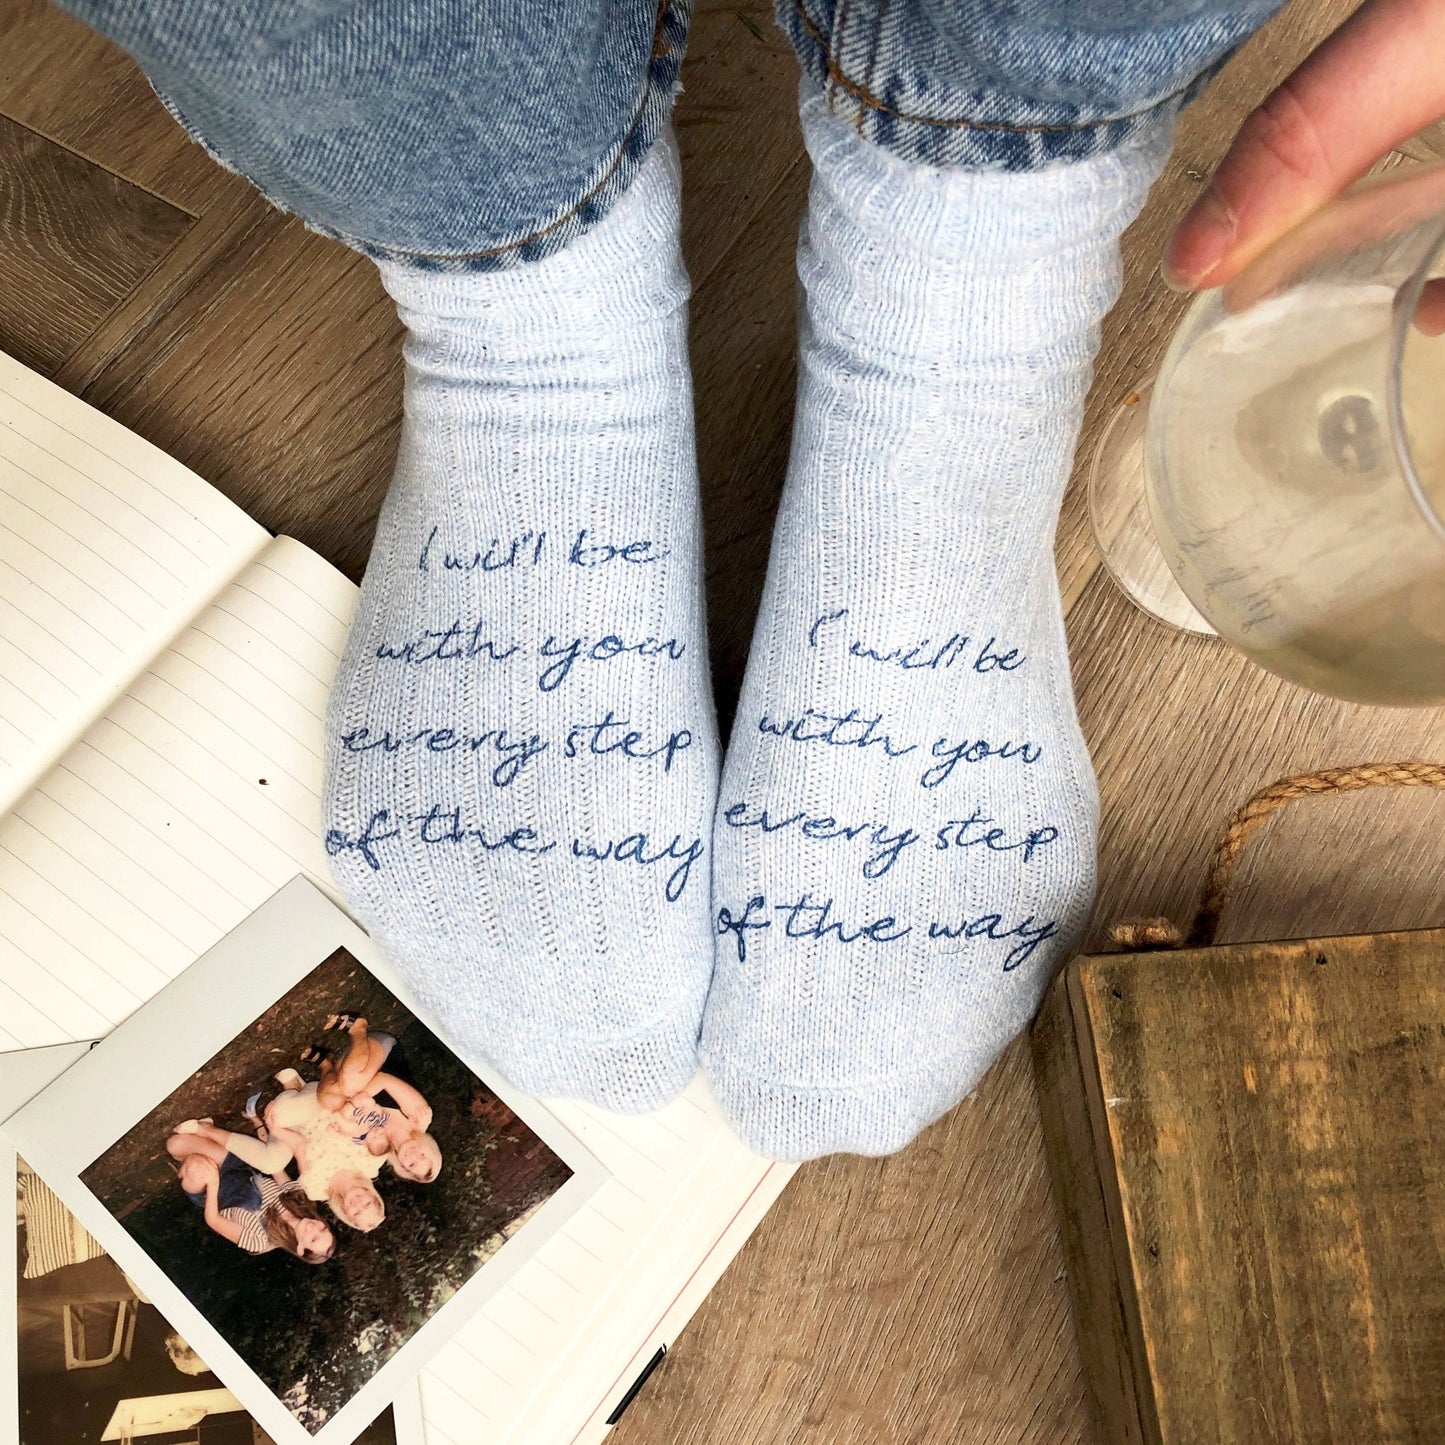 I will be
with you
every step
of the way
I will be
with you
every step
of the way